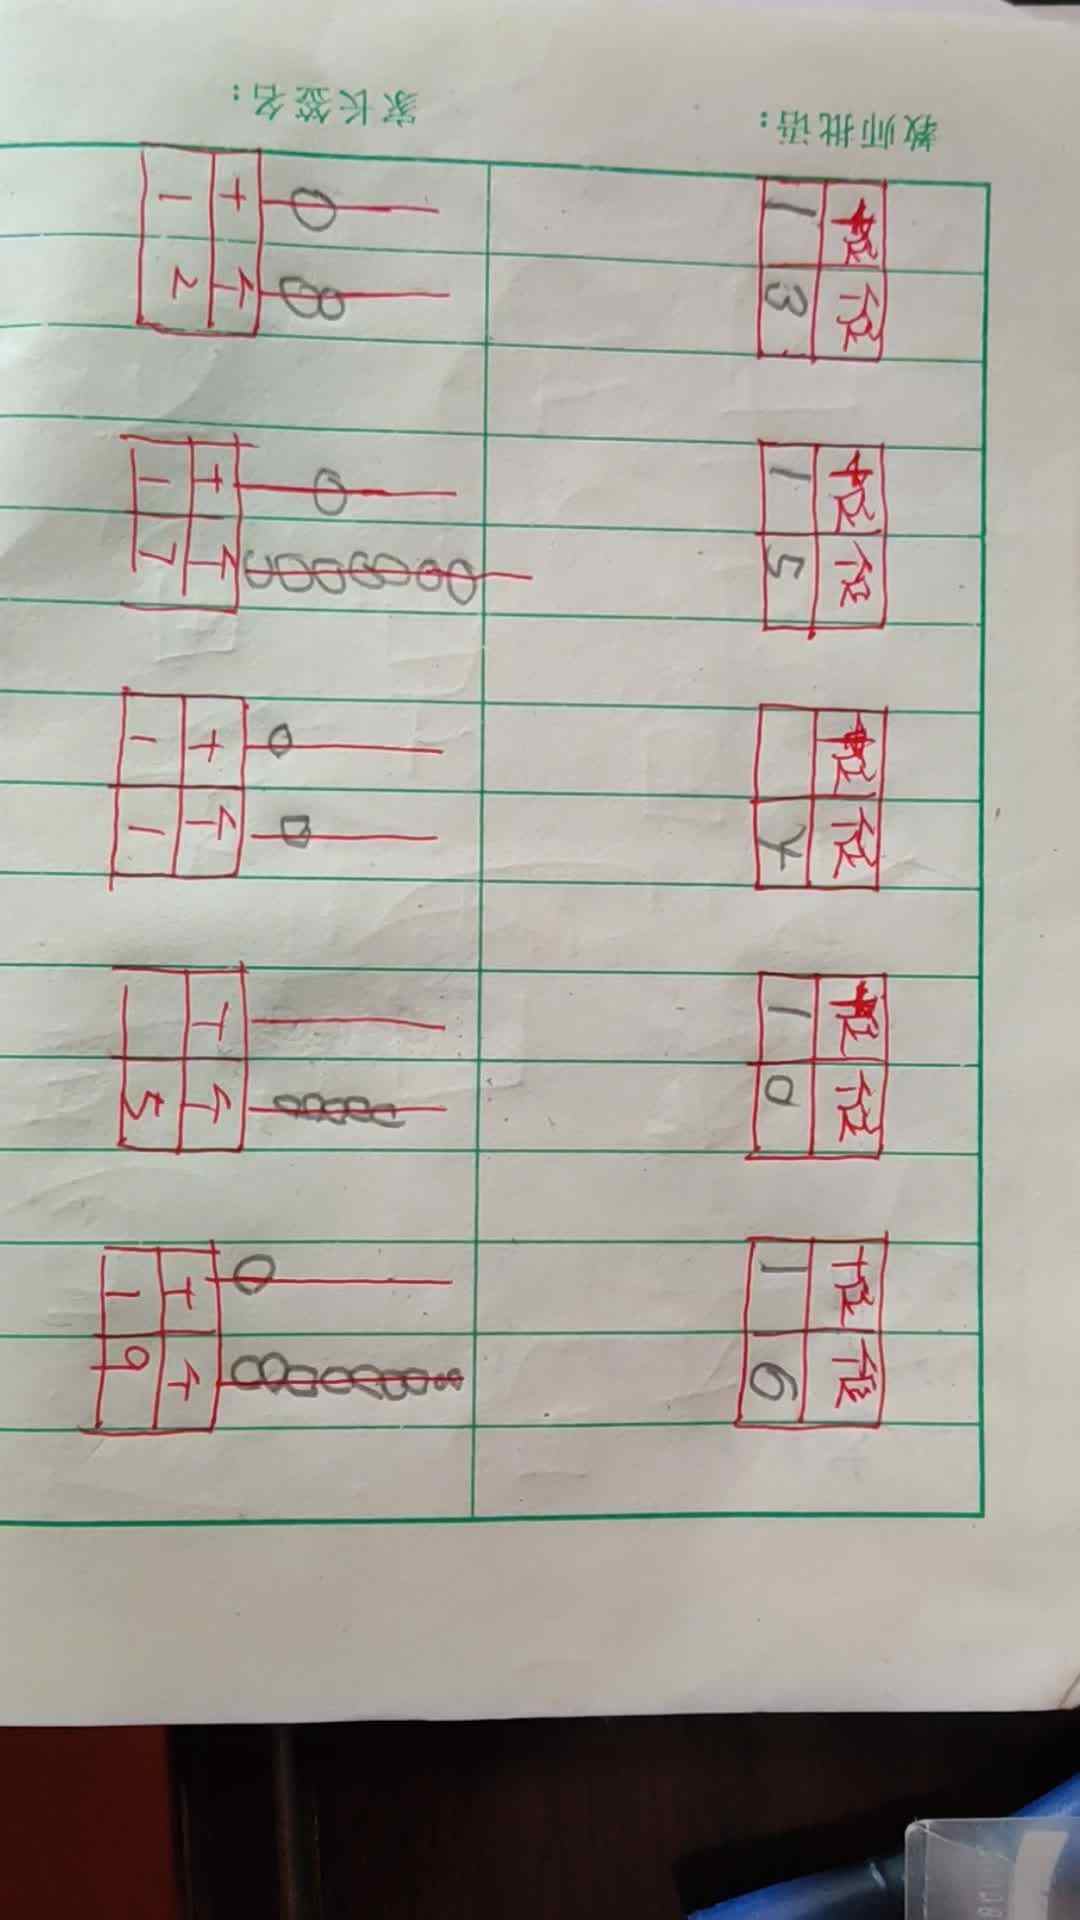 教师批语：
家长签名：
十位 个位 十位 个位 十位 个位 十位 个位 十位 个位
1 3 1 5 4 1 0 1 6
十 个 十 个 十 个 十 个 十 个
1 2 1 7 1 1 5 1 9